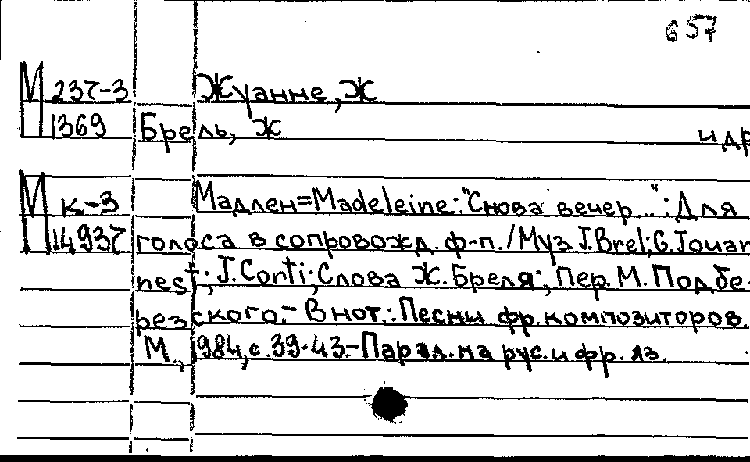 657
М 237-3 Жуанне, Ж
1369 Брель, Ж и др
М к-3 Мадлен=Madeleine:"Снова вечер...":Для
14937 голоса в сопровожд. ф-п./Муз J.Brel;G.Jouan
nest; J.Corti;Слова Ж.Бреля; Пер.М.Подбе-
резского.-В нот.:Песни фр.композиторов.
М., 1984,с.39-43.-Парал.на рус.и фр. яз.